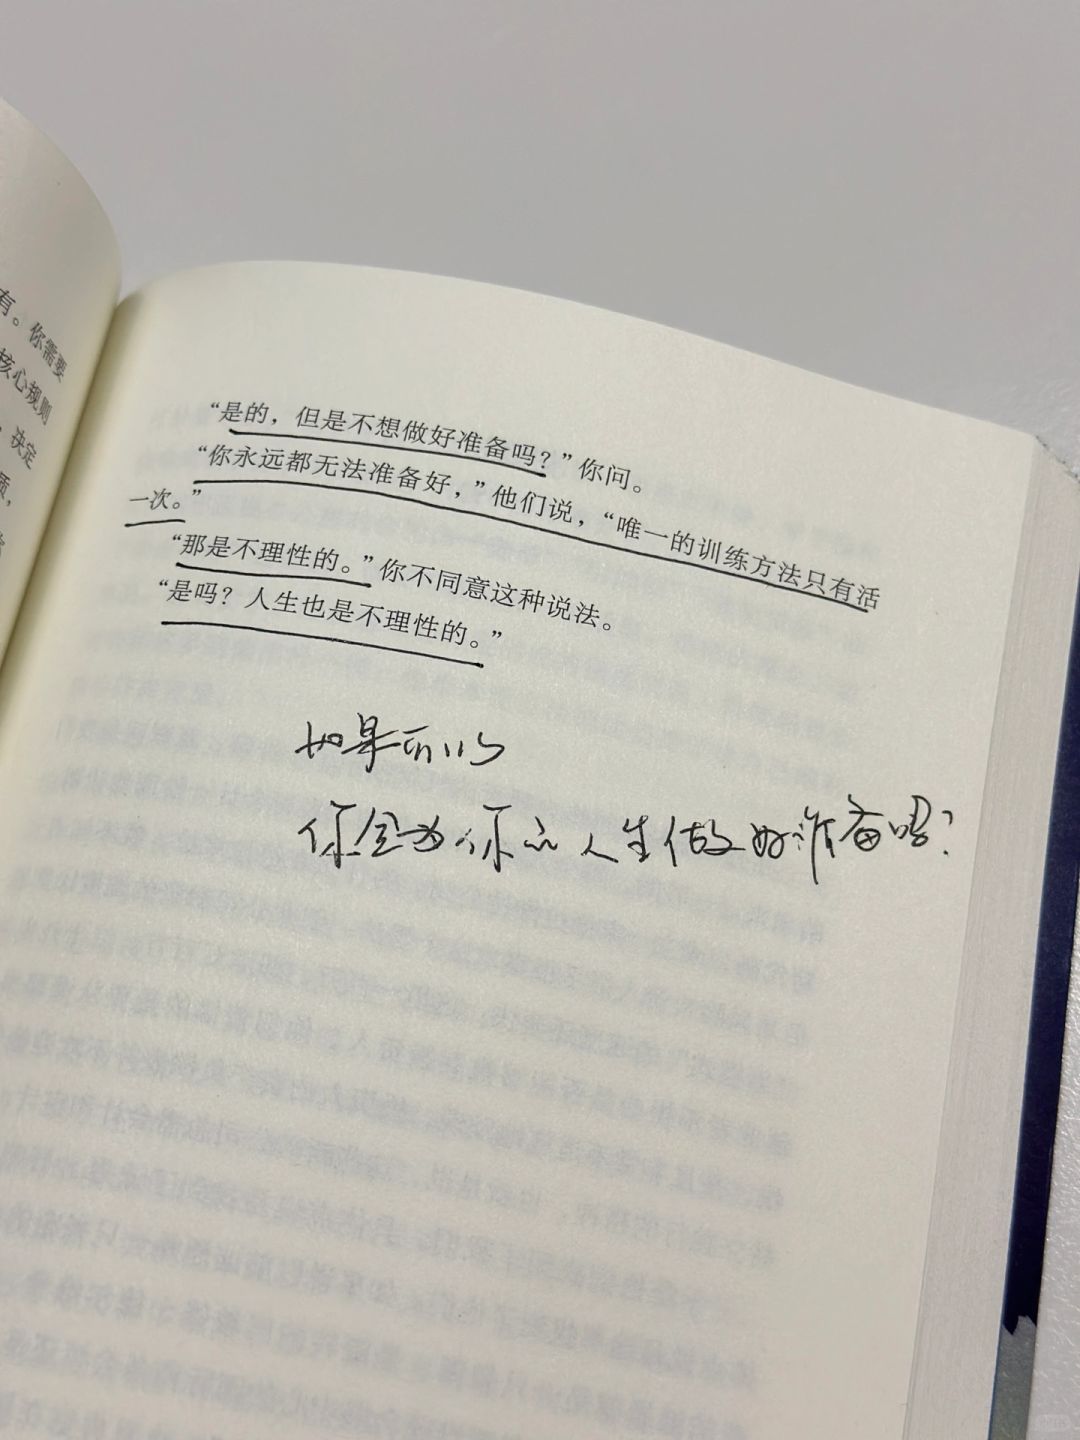 有。你需要
核心规则
，决定
“是的，但是不想做好准备吗？”你问。
“你永远都无法准备好，”他们说，“唯一的训练方法只有活
一次。”
“那是不理性的。”你不同意这种说法。
“是吗？人生也是不理性的。”
如果可以
你会为你的人生做好准备吗？